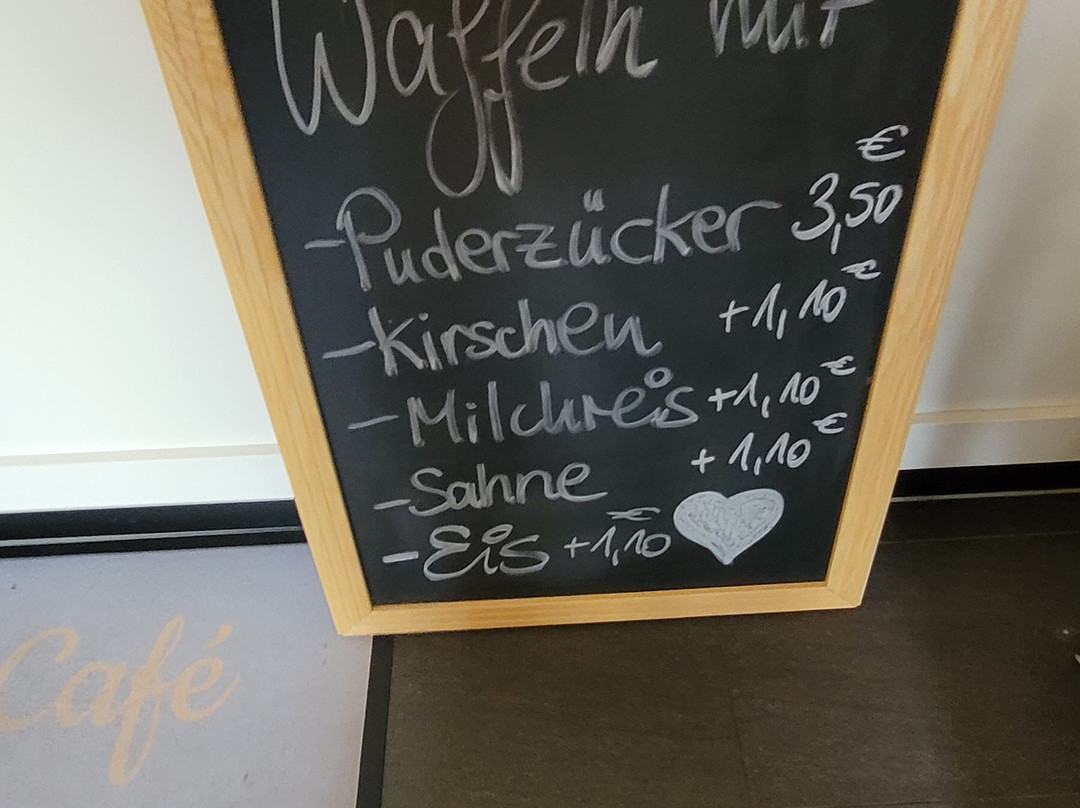 Waffeln mit
€
-Puderzücker 3,50
-Kirschen +1,10€
-Milchreis +1,10€
-Sahne +1,10€
-Eis +1,10€
Café